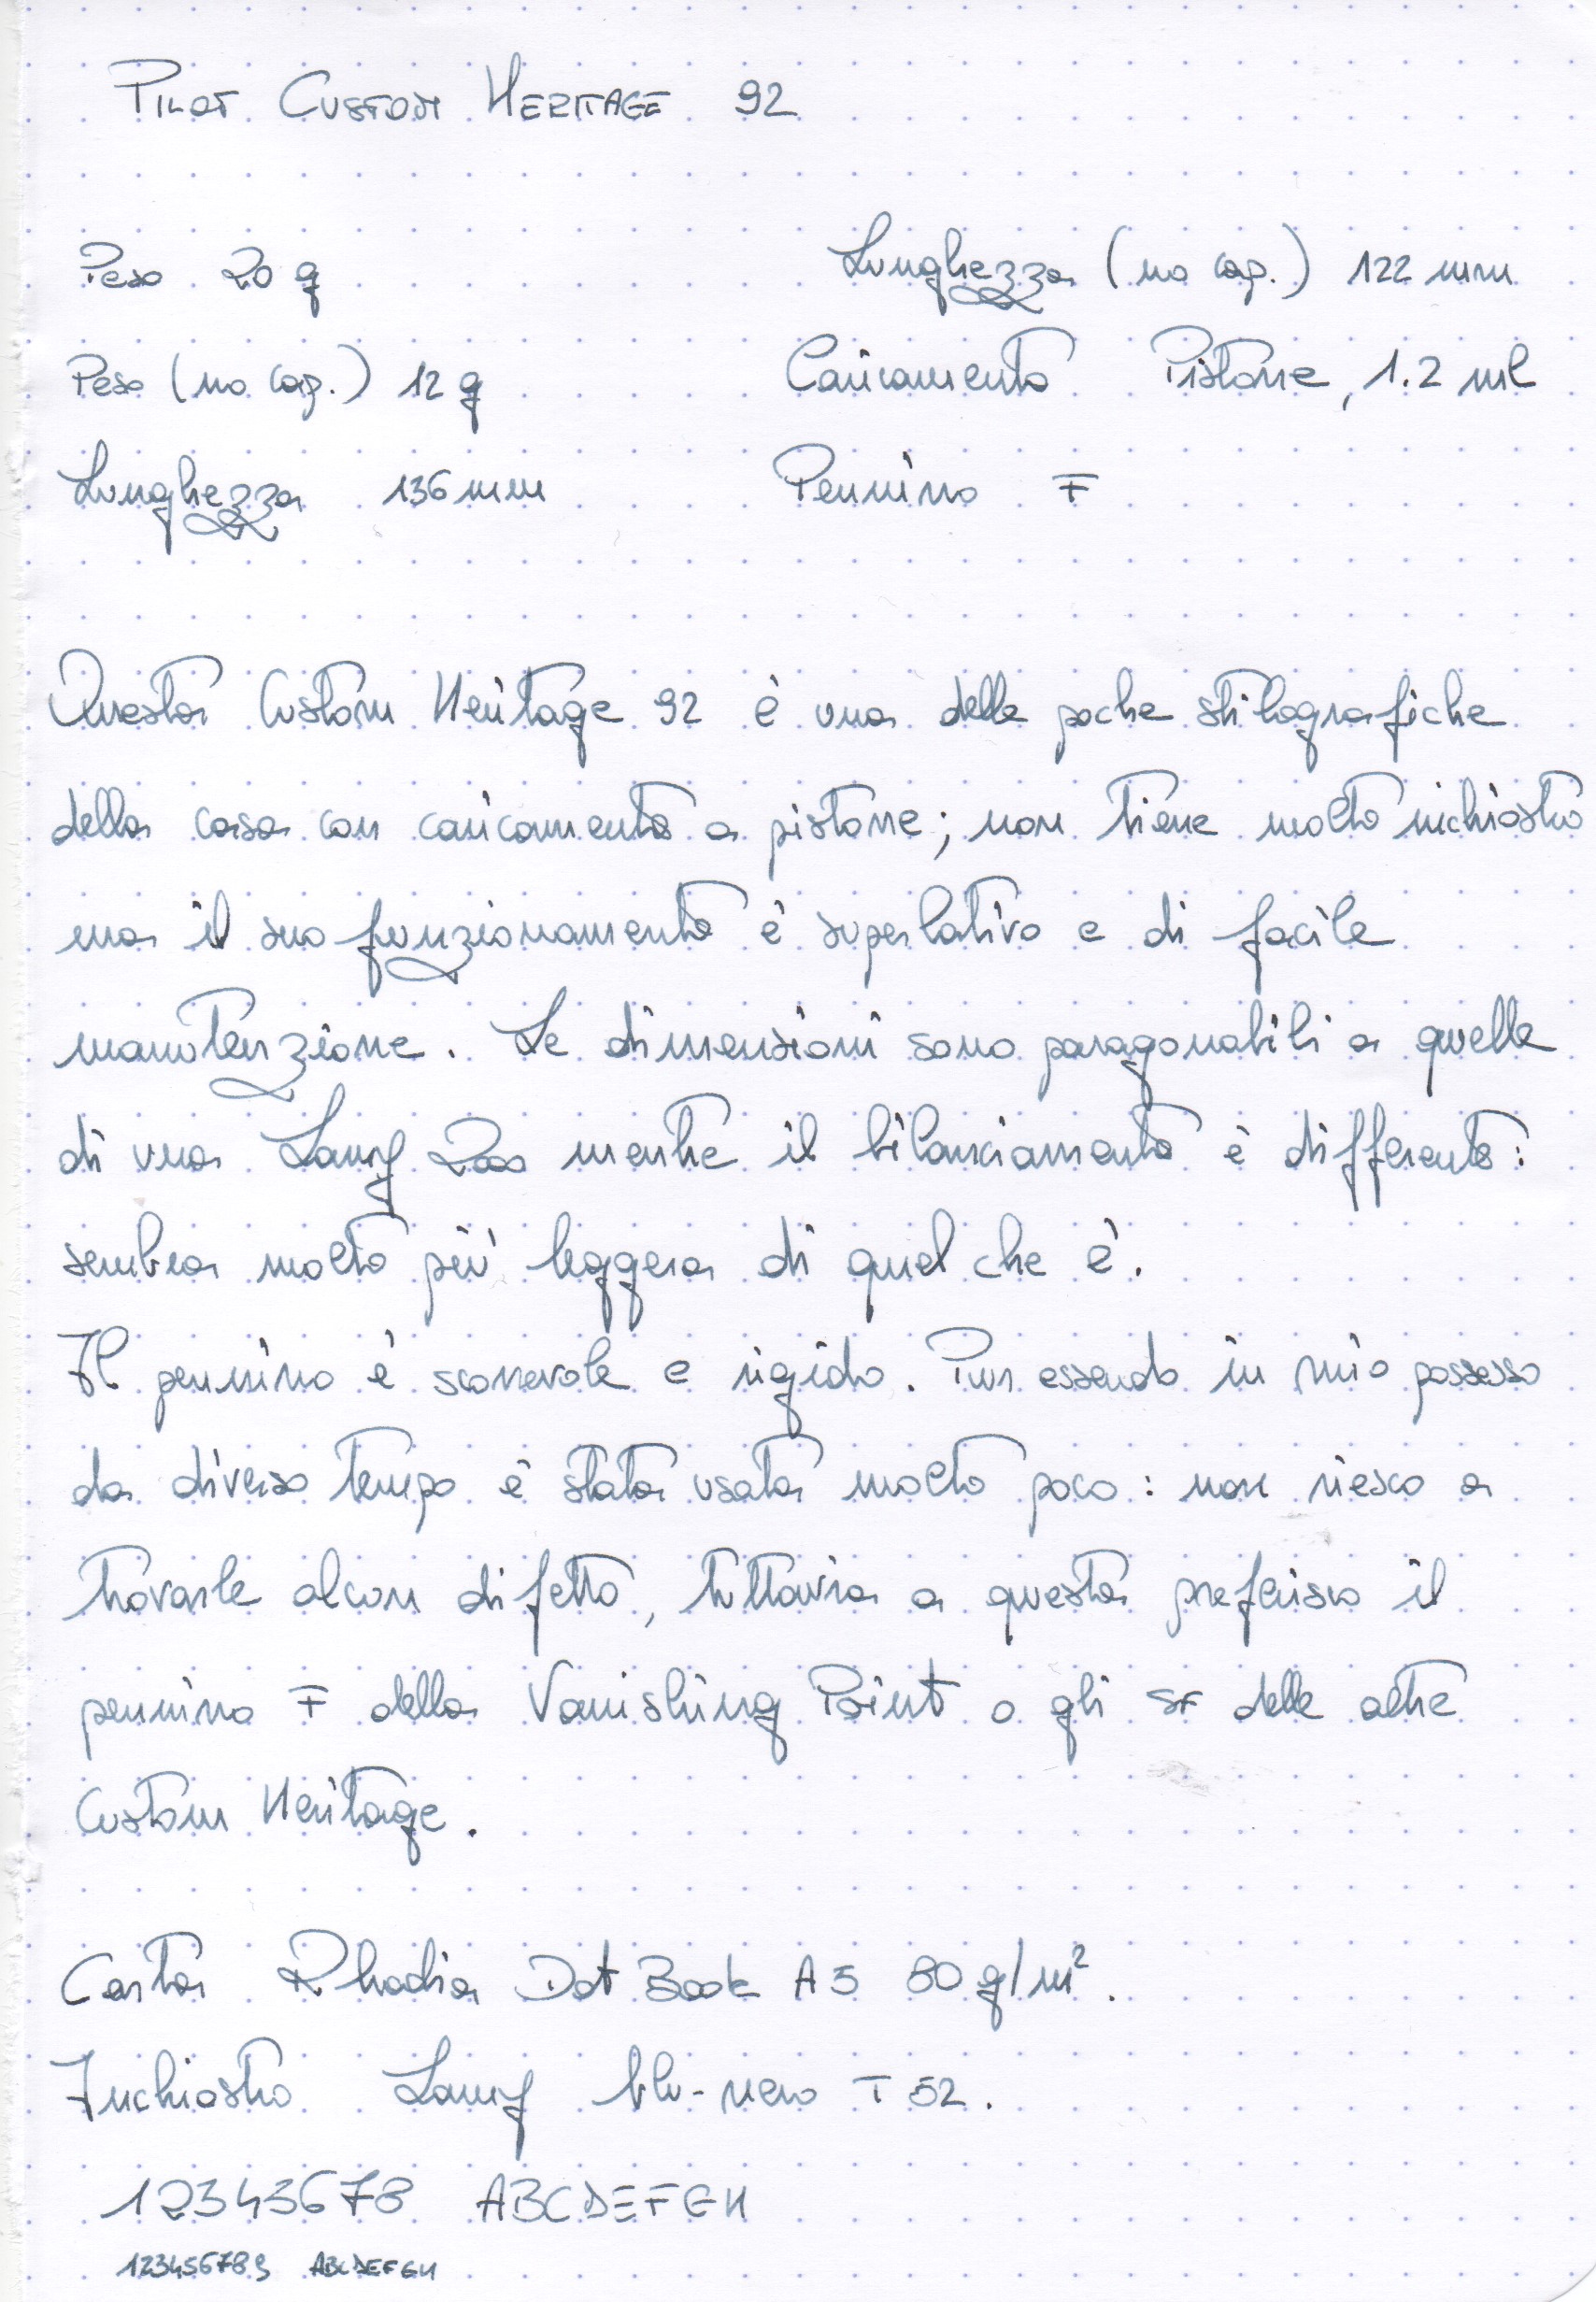 PILOT CUSTOM HERITAGE 92
Peso 20 g Lunghezza (no cap.) 122 mm
Peso (no cap.) 12 g Caricamento Pistone, 1.2 ml
Lunghezza 136 mm Pennino F
Questa Custom Heritage 92 è una delle poche stilografiche
della casa con caricamento a pistone; non tiene molto inchiostro
ma il suo funzionamento è superlativo e di facile
manutenzione. Le dimensioni sono paragonabili a quelle
di una Lamy 2000 mentre il bilanciamento è differente:
sembra molto più leggera di quel che è.
Il pennino è scorrevole e rigido. Pur essendo in mio possesso
da diverso tempo è stata usata molto poco: non riesco a
trovarle alcun difetto, tuttavia a questa preferisco il
pennino F della Vanishing Point o gli SF delle altre
Custom Heritage.
Carta Rhodia Dot Book A5 80 g/m².
Inchiostro Lamy blu-nero T 52.
12345678 ABCDEFGH
123456789 ABCDEFGH